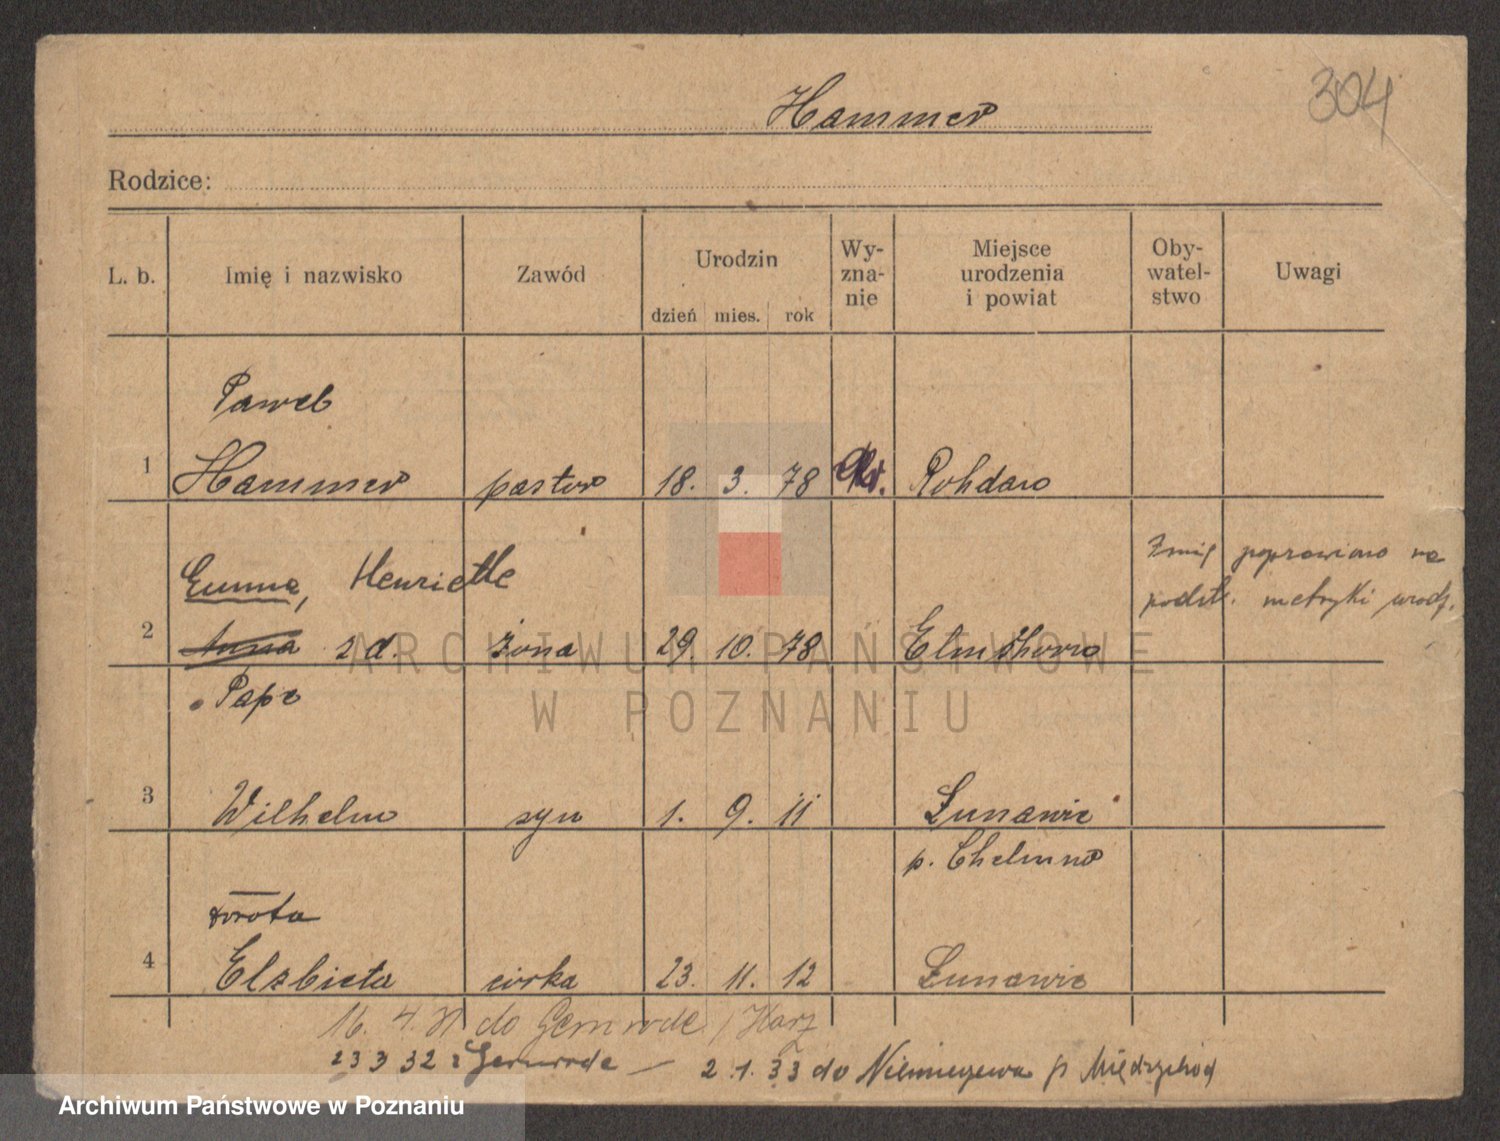 304
Hammer
Rodzice:
L. b. Imię i nazwisko Zawód Urodzin Wy-zna-nie Miejsce urodzenia i powiat Oby-watel-stwo Uwagi
dzień mies. rok
Paweł
1 Hammer pastor 18. 3. 78 Rohdaro
Emma, Henriette Imię poprawiono na
podst. metryki urodz.
2 Anna zd. żona 29. 10. 78 Elmshorn
Pape
3 Wilhelm syn 1. 9. 11 Łunawie
p. Chełmno
Dorota
4 Elżbieta córka 23. 11. 12 Łunawie
16. 4. do Gernrode / Harz
23 3 32 z Gernrode — 2.1.33 do Niemieczewa p Międzychód
ARCHIWUM PAŃSTWOWE
W POZNANIU
Archiwum Państwowe w Poznaniu